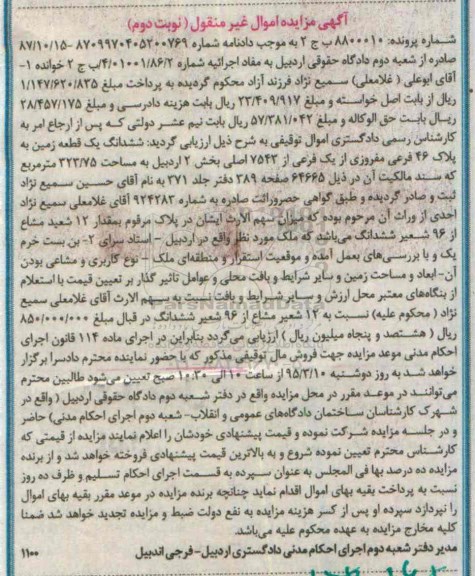 آگهی مزایده اموال غیر منقول (نوبت دوم)
شماره پرونده: ۸۸۰۰۰۱۰ ب ج ۲ به موجب دادنامه شماره ۸۷۰۹۹۷۰۴۰۵۲۰۰۷۶۹ -۸۷/۱۰/۱۵
صادره از شعبه دوم دادگاه حقوقی اردبیل به مفاد اجرائیه شماره ۴/۰۱۰۰۱/۸۶/۲/ب ج ۲ خوانده ۱-
آقای ابوعلی (غلامعلی) سمیع نژاد فرزند آزاد محکوم گردیده به پرداخت مبلغ ۱/۱۴۷/۶۲۰/۸۳۵
ریال از بابت اصل خواسته و مبلغ ۲۳/۴۰۹/۹۱۷ ریال بابت هزینه دادرسی و مبلغ ۲۸/۴۵۷/۱۷۵
ریال بابت حق الوکاله و مبلغ ۵۷/۳۸۱/۰۴۲ ریال بابت نیم عشر دولتی که پس از ارجاع امر به
کارشناس رسمی دادگستری اموال توقیفی به شرح ذیل ارزیابی گردید: ششدانگ یک قطعه زمین به
پلاک ۴۶ فرعی مفروزی از یک فرعی از ۷۵۴۳ اصلی بخش ۲ اردبیل به مساحت ۳۲۳/۷۵ مترمربع
که سند مالکیت آن در ذیل ۶۴۶۶۵ صفحه ۳۸۹ دفتر جلد ۳۷۱ به نام آقای حسین سمیع نژاد
ثبت و صادر گردیده و طبق گواهی حصروراثت صادره به شماره ۹۲۴۲۸۳ آقای غلامعلی سمیع نژاد
احدی از وراث آن مرحوم بوده که میزان سهم الارث ایشان در پلاک مرقوم بمقدار ۱۲ شعیر مشاع
از ۹۶ شعیر ششدانگ می‌باشد که ملک مورد نظر واقع در اردبیل - استاد سرای ۲- بن بست خرم
یک و با بررسی‌های بعمل آمده و موقعیت استقرار و منطقه‌ای ملک - نوع کاربری و مشاعی بودن
آن- ابعاد و مساحت زمین و سایر شرایط و بافت محلی و عوامل تاثیر گذار بر تعیین قیمت با استعلام
از بنگاه‌های معتبر محل ارزش و سایر شرایط و بافت نسبت به سهم الارث آقای غلامعلی سمیع
نژاد (محکوم علیه) نسبت به ۱۲ شعیر مشاع از ۹۶ شعیر ششدانگ در قبال مبلغ ۸۵۰/۰۰۰/۰۰۰
ریال (هشتصد و پنجاه میلیون ریال) ارزیابی می‌گردد بنابراین در اجرای ماده ۱۱۴ قانون اجرای
احکام مدنی موعد مزایده جهت فروش مال توقیفی مذکور که با حضور نماینده محترم دادسرا برگزار
خواهد شد به روز دوشنبه ۹۵/۳/۱۰ از ساعت ۱۰ الی ۱۰.۳۰ صبح تعیین می‌شود طالبین محترم
می‌توانند در موعد مقرر در محل مزایده واقع در دفتر شعبه دوم دادگاه حقوقی اردبیل (واقع در
شهرک کارشناسان ساختمان دادگاه‌های عمومی و انقلاب- شعبه دوم اجرای احکام مدنی) حاضر
و در جلسه مزایده شرکت نموده و قیمت پیشنهادی خودشان را اعلام نمایند مزایده از قیمتی که
کارشناس محترم تعیین نموده شروع و به بالاترین قیمت پیشنهادی فروخته خواهد شد و از برنده
مزایده ده درصد بها فی المجلس به عنوان سپرده به قسمت اجرای احکام تسلیم و ظرف ده روز
نسبت به پرداخت بقیه بهای اموال اقدام نماید چنانچه برنده مزایده در موعد مقرر بقیه بهای اموال
را نپردازد سپرده او پس از کسر هزینه مزایده به نفع دولت ضبط و مزایده تجدید خواهد شد ضمنا
کلیه مخارج مزایده به عهده محکوم علیه می‌باشد.
مدیر دفتر شعبه دوم اجرای احکام مدنی دادگستری اردبیل- فرجی اندبیل ۱۱۰۰